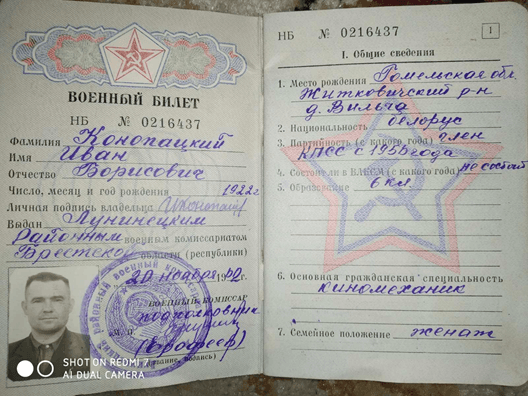 ВОЕННЫЙ БИЛЕТ
НБ № 0216437
Фамилия Конопацкий
Имя Иван
Отчество Борисович
Число, месяц и год рождения 1922г
Личная подпись владельца
Выдан Лунинецким
районным военным комиссариатом
Брестской области (республики)
20 ноября
ВОЕННЫЙ КОМИССАР
подполковник
(Ерофеев)
SHOT ON REDMI 7
AI DUAL CAMERA
НБ № 0216437
1
I. Общие сведения
1. Место рождения Гомельская обл.
Житковичский р-н
д. Вильча
2. Национальность белорус
3. Партийность (с какого года) член
КПСС с 1955 года
4. Состоит ли в ВЛКСМ (с какого года) не состоит
5. Образование 6 кл.
6. Основная гражданская специальность
киномеханик
7. Семейное положение женат